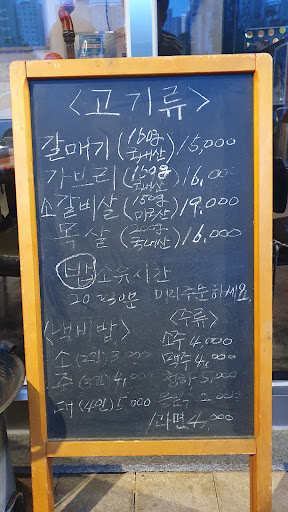 <고기류>
갈매기(160g 국내산)15,000
가브리(150g 국내산)16,000
소갈비살(150g 미국산)19,000
목살(200g 국내산)16,000
밥 소요시간
20~30분 미리주문하세요
<냄비밥>
소(2인)3,000
중(3인)4,000
대(4인)5,000
<주류>
소주 4,000
맥주 4,000
청하 5,000
음료수 2,000
라면 4,000